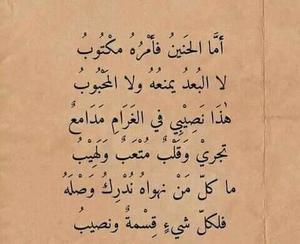 أمَّا الحَنينُ فَأمْرُهُ مكْتُوبُ
لا البُعدُ يمنعُهُ ولا المَحْبُوبُ
هٰذَا نَصِيْبِي في الغَرَامِ مَدَامعٌ
تجريْ وَقَلْبٌ مُتْعَبٌ وَلَهْيْبُ
ما كلّ مَنْ نهواهُ نُدْرِكُ وَصْلَهُ
فلكلّ شيءٍ قِسْمةٌ ونصيبُ